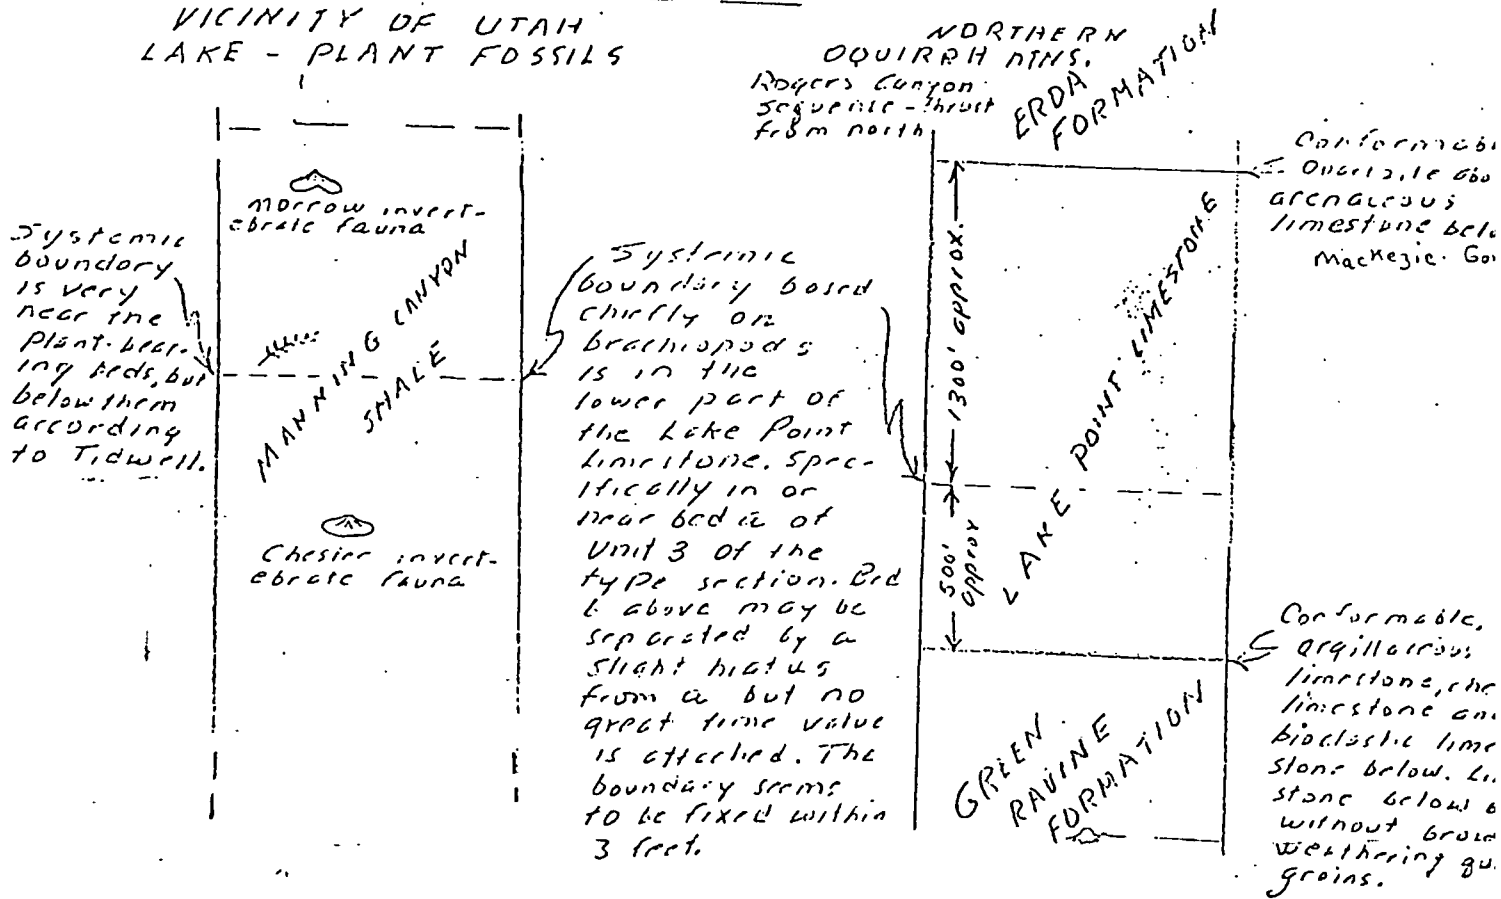 VICINITY OF UTAH
LAKE - PLANT FOSSILS
Morrow invert-
ebrate fauna
Systemic
boundary
is very
near the
plant-bear-
ing beds, but
below them
according
to Tidwell.
MANNING CANYON
SHALE
Chester invert-
ebrate fauna
Systemic
boundary based
chiefly on
brachiopods
is in the
lower part of
the Lake Point
Limestone. Spec-
ifically in or
near bed a of
Unit 3 of the
type section. Bed
b above may be
separated by a
slight hiatus
from a but no
great time value
is attached. The
boundary seems
to be fixed within
3 feet.
NORTHERN
OQUIRRH MTNS.
Rogers Canyon
sequence - thrust
from north
ERDA
FORMATION
1300' approx.
500'
approx
LAKE POINT LIMESTONE
GREEN
RAVINE
FORMATION
Conformab
Quartzite abo
arenaceous
limestone belo
Mackezie. Gor
Conformable,
argillaceous
limestone, che
limestone an
bioclastic lime
stone below. Li
stone below
without brow
weathering qu
grains.